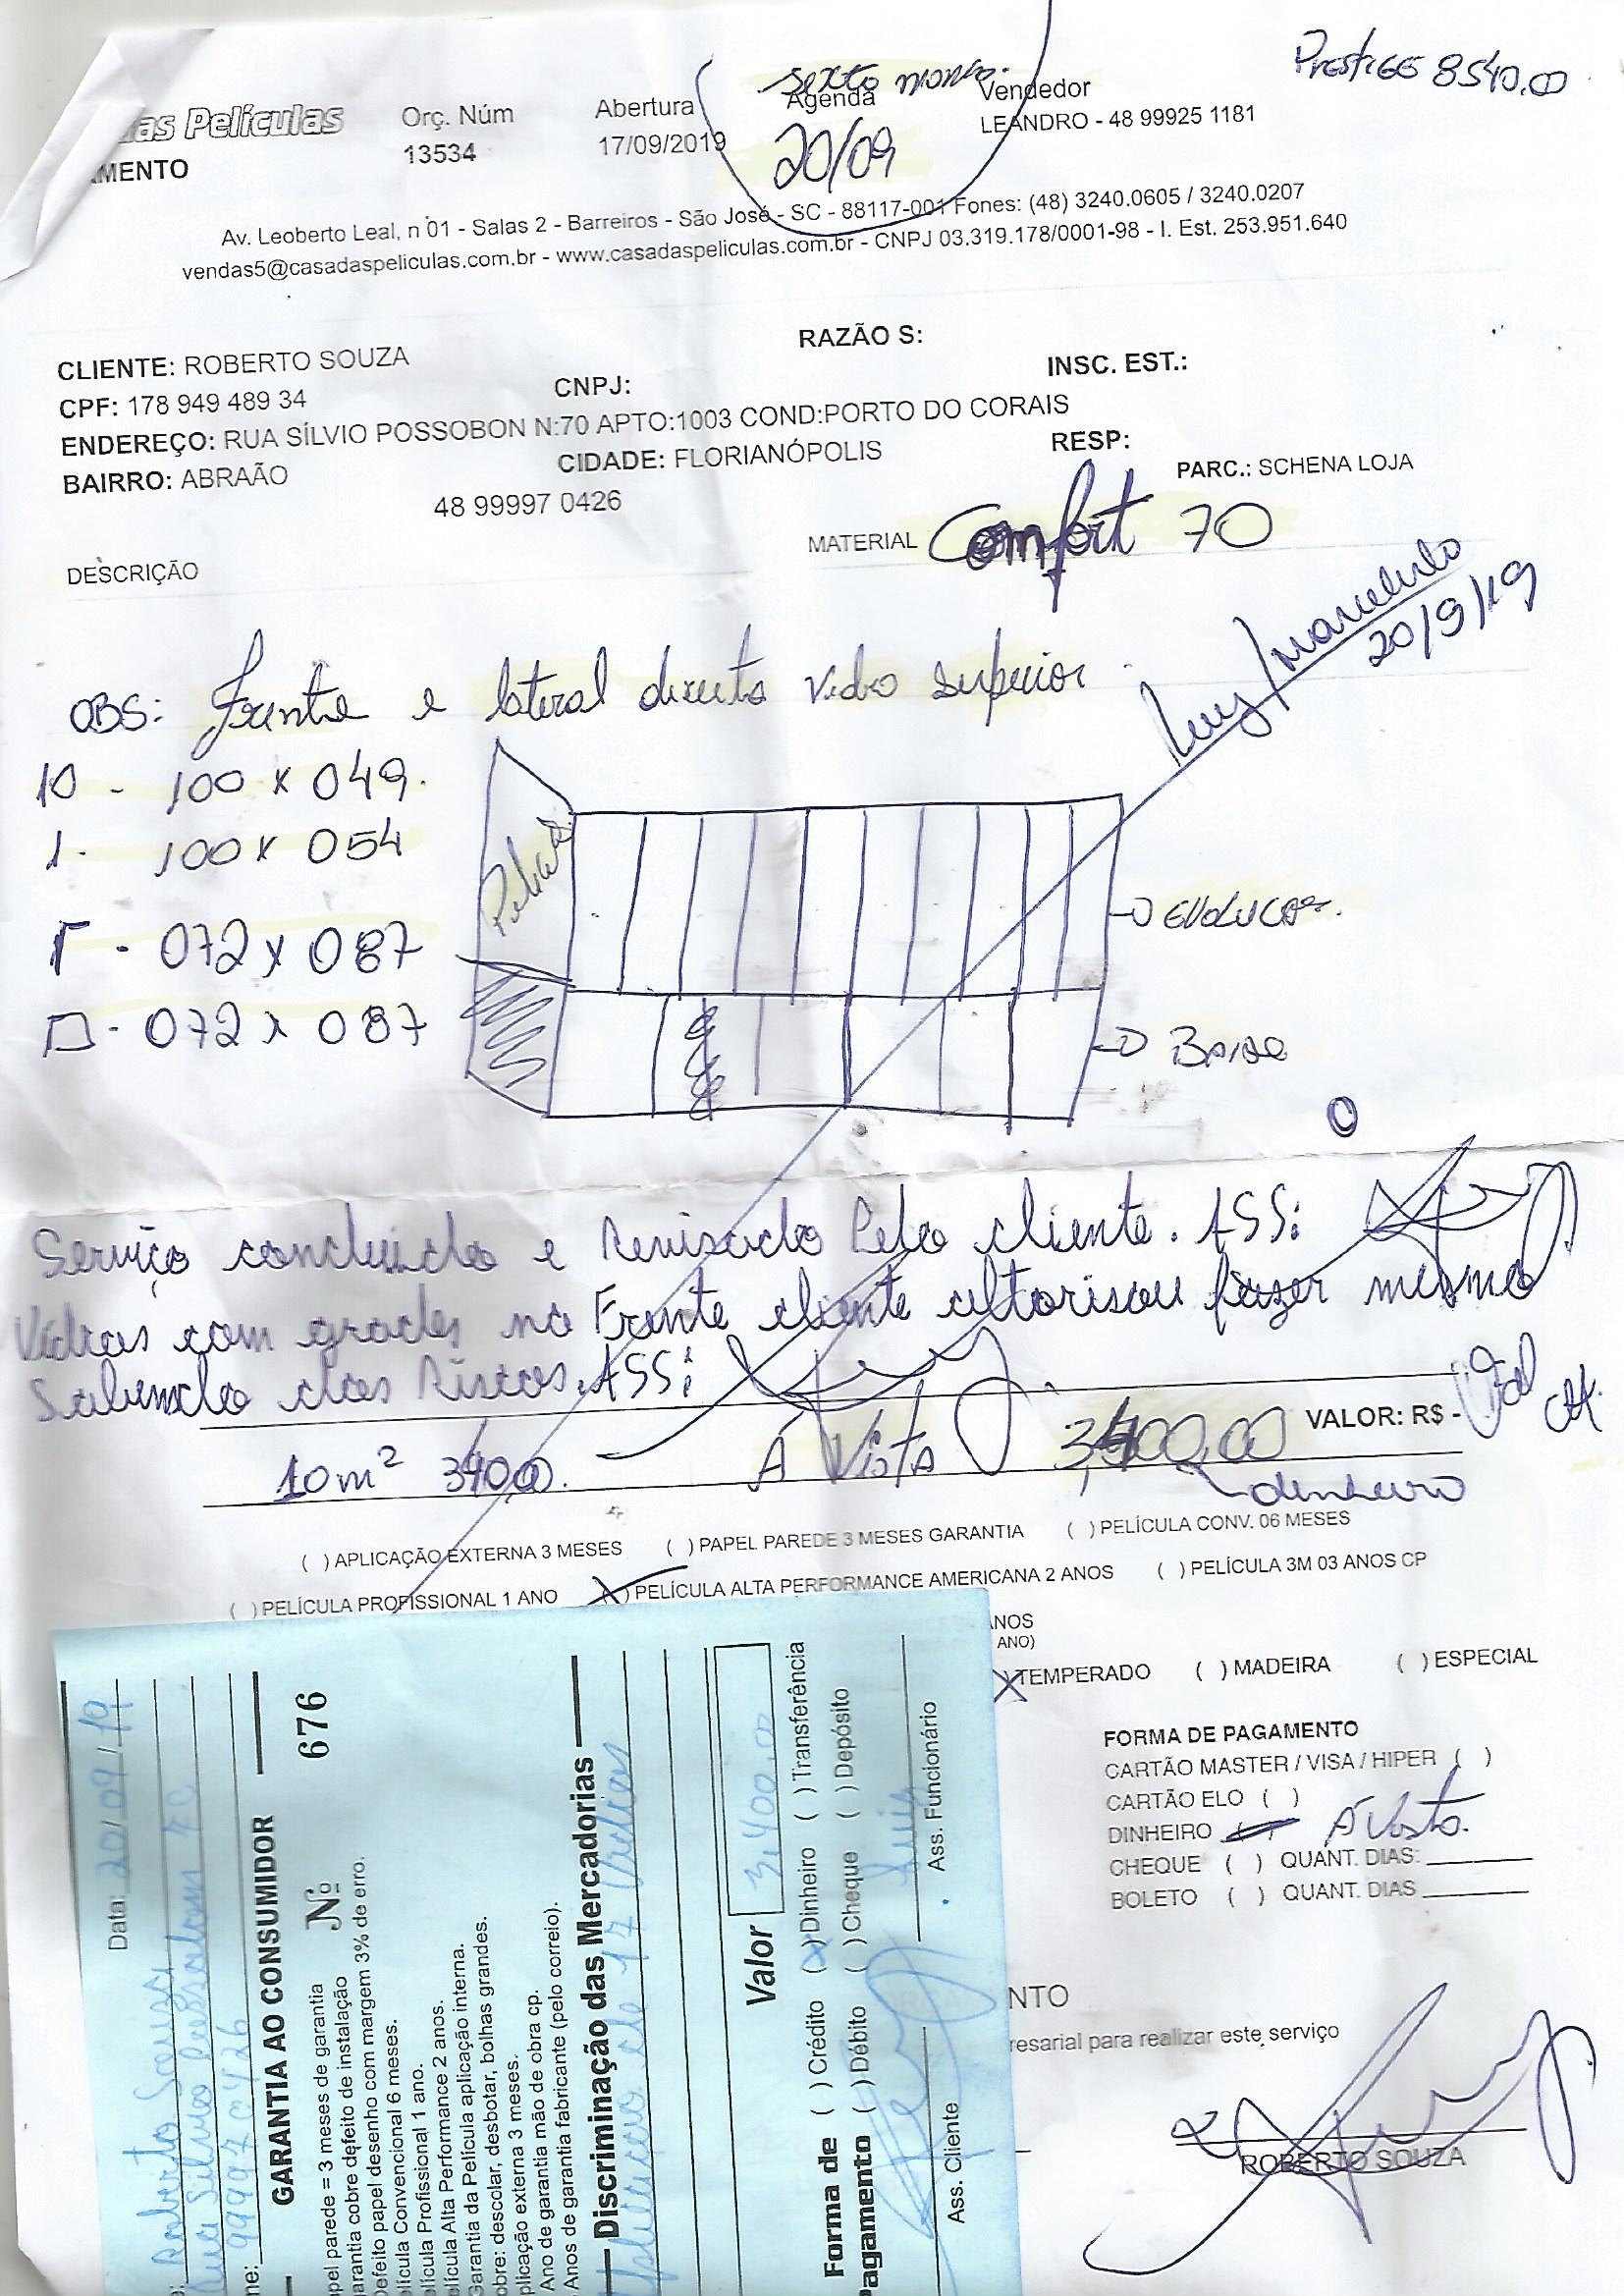 Prestige 8540,00
sexto
as Películas Orç. Núm Abertura Agenda Vendedor
AMENTO 13534 17/09/2019 20/09 LEANDRO - 48 99925 1181
Av. Leoberto Leal, n 01 - Salas 2 - Barreiros - São José - SC - 88117-001 Fones: (48) 3240.0605 / 3240.0207
vendas5@casadaspeliculas.com.br - www.casadaspeliculas.com.br - CNPJ 03.319.178/0001-98 - I. Est. 253.951.640
RAZÃO S:
CLIENTE: ROBERTO SOUZA
CPF: 178 949 489 34 CNPJ: INSC. EST.:
ENDEREÇO: RUA SÍLVIO POSSOBON N:70 APTO:1003 COND:PORTO DO CORAIS
BAIRRO: ABRAÃO CIDADE: FLORIANÓPOLIS RESP:
48 99997 0426 PARC.: SCHENA LOJA
DESCRIÇÃO MATERIAL Comfort 70
Luiz/marcelinho
20/9/19
OBS: Frente e lateral direita vidro superior
10 - 100 x 049.
1 - 100 x 054
072 x 087
072 x 087
Baixo
Serviço concluido e Revisado Pelo cliente. ASS:
Vidros com grades na Frente cliente altorisou fazer mesmo
Sabendo dos Riscos. ASS:
10m² 3400,00. À Vista 3,400,00 VALOR: R$ -
dinheiro
( ) APLICAÇÃO EXTERNA 3 MESES ( ) PAPEL PAREDE 3 MESES GARANTIA ( ) PELÍCULA CONV. 06 MESES
( ) PELÍCULA PROFISSIONAL 1 ANO (X) PELÍCULA ALTA PERFORMANCE AMERICANA 2 ANOS ( ) PELÍCULA 3M 03 ANOS CP
ANOS
ANO)
X) TEMPERADO ( ) MADEIRA ( ) ESPECIAL
FORMA DE PAGAMENTO
CARTÃO MASTER / VISA / HIPER ( )
CARTÃO ELO ( )
DINHEIRO ( ) À Vista.
CHEQUE ( ) QUANT. DIAS:
BOLETO ( ) QUANT. DIAS
NTO
resarial para realizar este serviço
ROBERTO SOUZA
Data: 20/09/19
Roberto Souza
Rua Silvio
ne: 99997 0426
GARANTIA AO CONSUMIDOR Nº 676
pel parede = 3 meses de garantia
arantia cobre defeito de instalação
efeito papel desenho com margem 3% de erro.
elícula Convencional 6 meses.
elícula Profissional 1 ano.
elícula Alta Performance 2 anos.
Garantia da Película aplicação interna.
obre: descolar, desbotar, bolhas grandes.
plicação externa 3 meses.
Ano de garantia mão de obra cp.
Anos de garantia fabricante (pelo correio).
Discriminação das Mercadorias
Aplicação de 17 Vidros
Valor 3.400,00
Forma de Pagamento
( ) Crédito (X) Dinheiro ( ) Transferência
( ) Débito ( ) Cheque ( ) Depósito
Luis
Ass. Cliente Ass. Funcionário